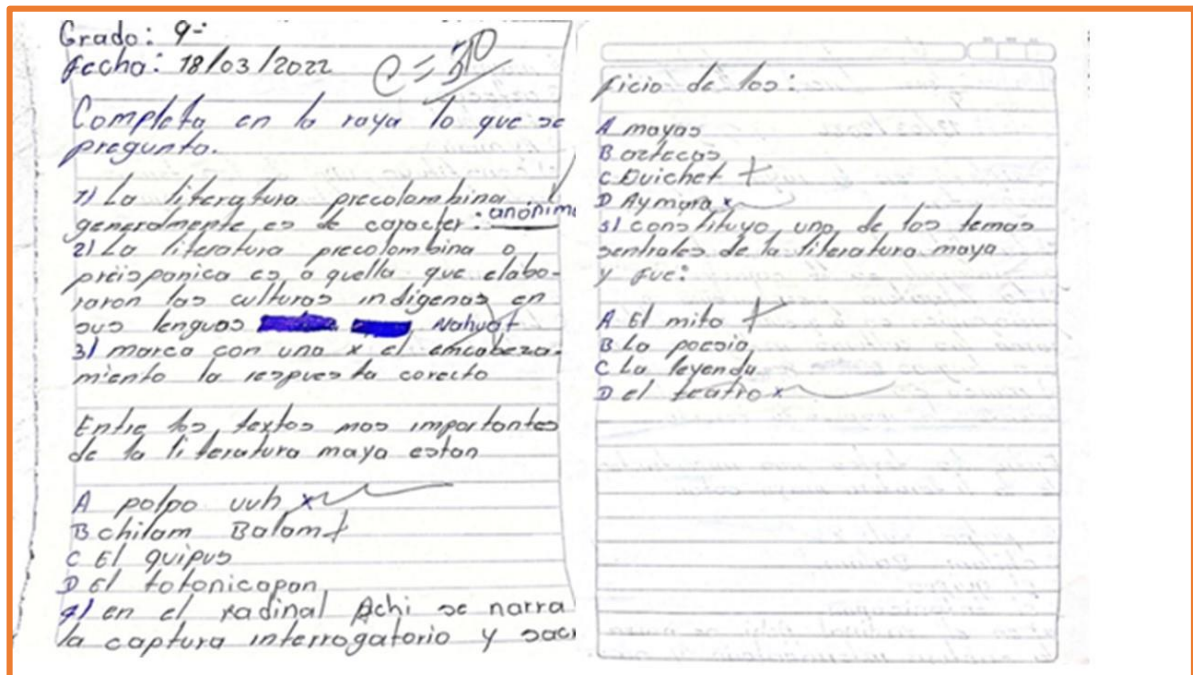 Grado: 9-
fecha: 18/03/2022
Completa en la raya lo que se
pregunto.
1) La literatura precolombina
generalmente es de caracter: anónima
2) La literatura precolombina o
preispanica es aquella que elabo-
raron las culturas indigenas en
sus lenguas Nahuat
3) marca con una x el emcabeza-
miento la respuesta corecto
Entre los textos mas importantes
de la literatura maya estan
A polpo vuh x
B chilam Balam
C El quipus
D El totonicapan
4) en el radinal Achi se narra
la captura interrogatorio y sacri
ficio de los:
A mayas
B aztecas
C Quichet
D Aymara x
5) constituyo uno de los temas
sentrales de la literatura maya
y fue:
A El mito
B La poesia
C La leyenda
D el teatro x